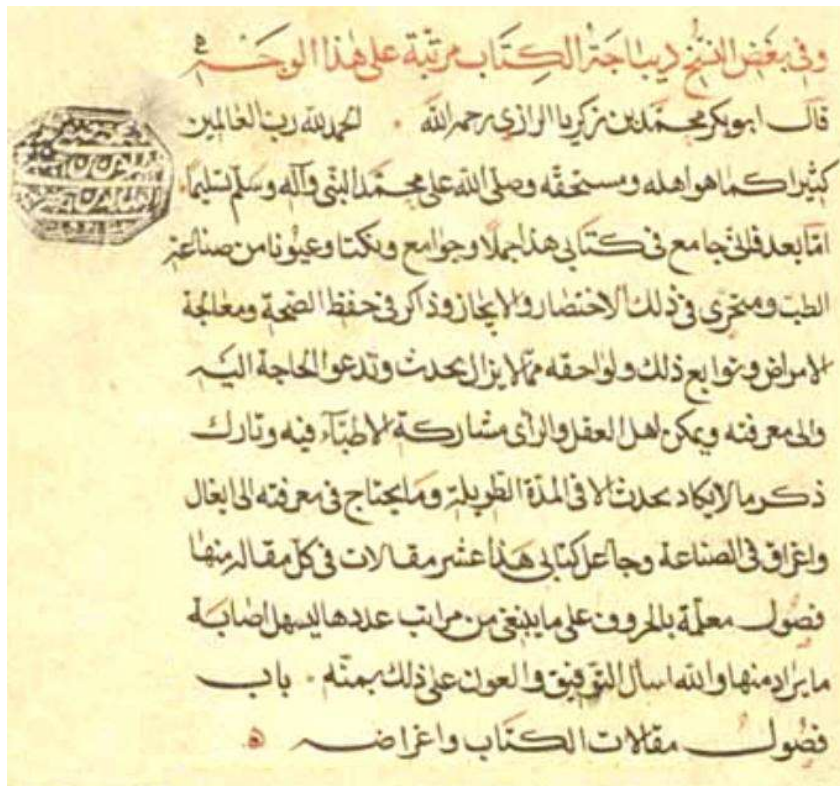 وفى بعض النسخ ديباجة الكتاب مرتبة على هذا الوجه
قال ابو بكر محمد بن زكريا الرازى رحمه الله الحمد لله رب العالمين
كثيرا كما هو اهله ومستحقه وصلى الله على محمد النبى وآله وسلم تسليما
اما بعد فانى جامع فى كتابى هذا جملا وجوامع ونكتا وعيونا من صناعة
الطب ومتحرى فى ذلك الاختصار والايجاز وذاكر فى حفظ الصحة ومعالجة
الامراض وتوابع ذلك ولواحقه مما لايزال يحدث وتدعو الحاجة اليه
والى معرفته ويمكن اهل العقل والراى مشاركة الاطباء فيه وتارك
ذكر ما لايكاد يحدث الا فى المدة الطويلة وما يحتاج فى معرفته الى ايغال
واغراق فى الصناعة وجاعل كتابى هذا عشر مقالات فى كل مقالة منها
فصول معلمة بالحروف على ما ينبغى من مراتب عددها ليسهل اصابة
ما يراد منها والله اسأل التوفيق والعون على ذلك بمنه باب
فصول مقالات الكتاب واغراضه